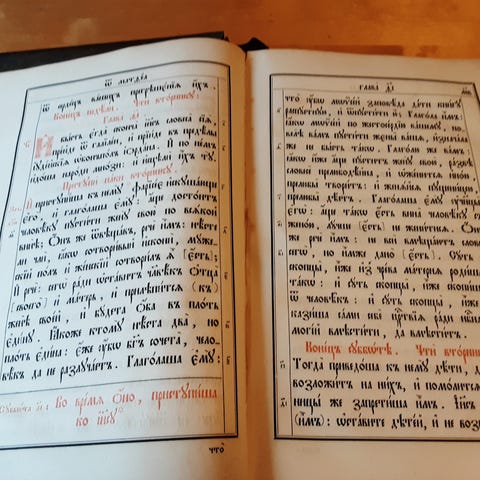 ѿ матѳеа
ѿ сердецъ вашихъ прегрѣшенїѧ ихъ.
Конецъ недѣли. Чти вторникꙋ:
Глава ѳ҃і
И бысть єгда сконча і҃исъ словеса сїѧ,
прейде ѿ галїлеи, и прїиде въ предѣлы
іꙋдейскїѧ ѡбонъполъ їордана. И по немъ
идоша народи мнози: и исцѣли ихъ тꙋ.
Престꙋпи паки вторникꙋ.
И пристꙋпиша къ немꙋ фарїсее искꙋшающе
єго, и глаголаша ємꙋ: аще достоитъ
человѣкꙋ пꙋстити женꙋ свою по всѧкой
винѣ; Онъ же ѿвѣщавъ, рече имъ: нѣсте
ли чли, ꙗкѡ сотворивый искони, мꙋже-
скїй полъ и женскїй сотворилъ ѧ (єсть);
И рече: сегѡ ради ѡставитъ человѣкъ отца
(своего) и матерь, и прилѣпитсѧ (къ)
женѣ своей, и бꙋдета ѻба въ плоть
єдинꙋ. Ꙗкоже ктомꙋ нѣста два, но
плоть єдина: єже ꙋбѡ бг҃ъ сочета, чело-
вѣкъ да не разлꙋчаетъ. Глаголаша ємꙋ:
Сꙋббѡта
Во времѧ ѻно, пристꙋпиша
ко і҃исꙋ
что
Глава ѳ҃і
что ꙋбѡ мѡѵсей заповѣда дати книгꙋ
распꙋстнꙋю, и ѿпꙋстити ю; Глагола имъ:
ꙗкѡ мѡѵсей по жестосердїю вашемꙋ, по-
велѣ вамъ пꙋстити жены вашѧ, изначала
же не бысть такѡ. Глаголю же вамъ:
ꙗкѡ иже аще пꙋститъ женꙋ свою, развѣ
словесе прелюбодѣйна, и ѡженитсѧ иною,
прелюбы творитъ: и женѧйсѧ пꙋщеницею,
прелюбы дѣетъ. Глаголаша ємꙋ ꙋченицы
єгѡ: аще такѡ єсть вина человѣкꙋ съ
женою, лꙋчше (єсть) не женитисѧ. Онъ
же рече имъ: не вси вмѣщаютъ словесе
сегѡ, но имже дано (єсть). Сꙋть бо
скопцы, иже из чрева матернѧ родишасѧ
такѡ: и сꙋть скопцы, иже скопишасѧ
ѿ человѣкъ: и сꙋть скопцы, иже иска-
казиша сами себе црⷭ҇твїѧ ради нбⷭ҇нагѡ:
могїй вмѣстити да вмѣститъ.
Конецъ сꙋббѡтѣ. Чти вторникꙋ
Тогда приведоша къ немꙋ дѣти, да
возложитъ на нихъ, и помолитсѧ:
ницы же запретиша имъ. І҃исъ же
(имъ): ѡставите дѣтей, и не возбра-